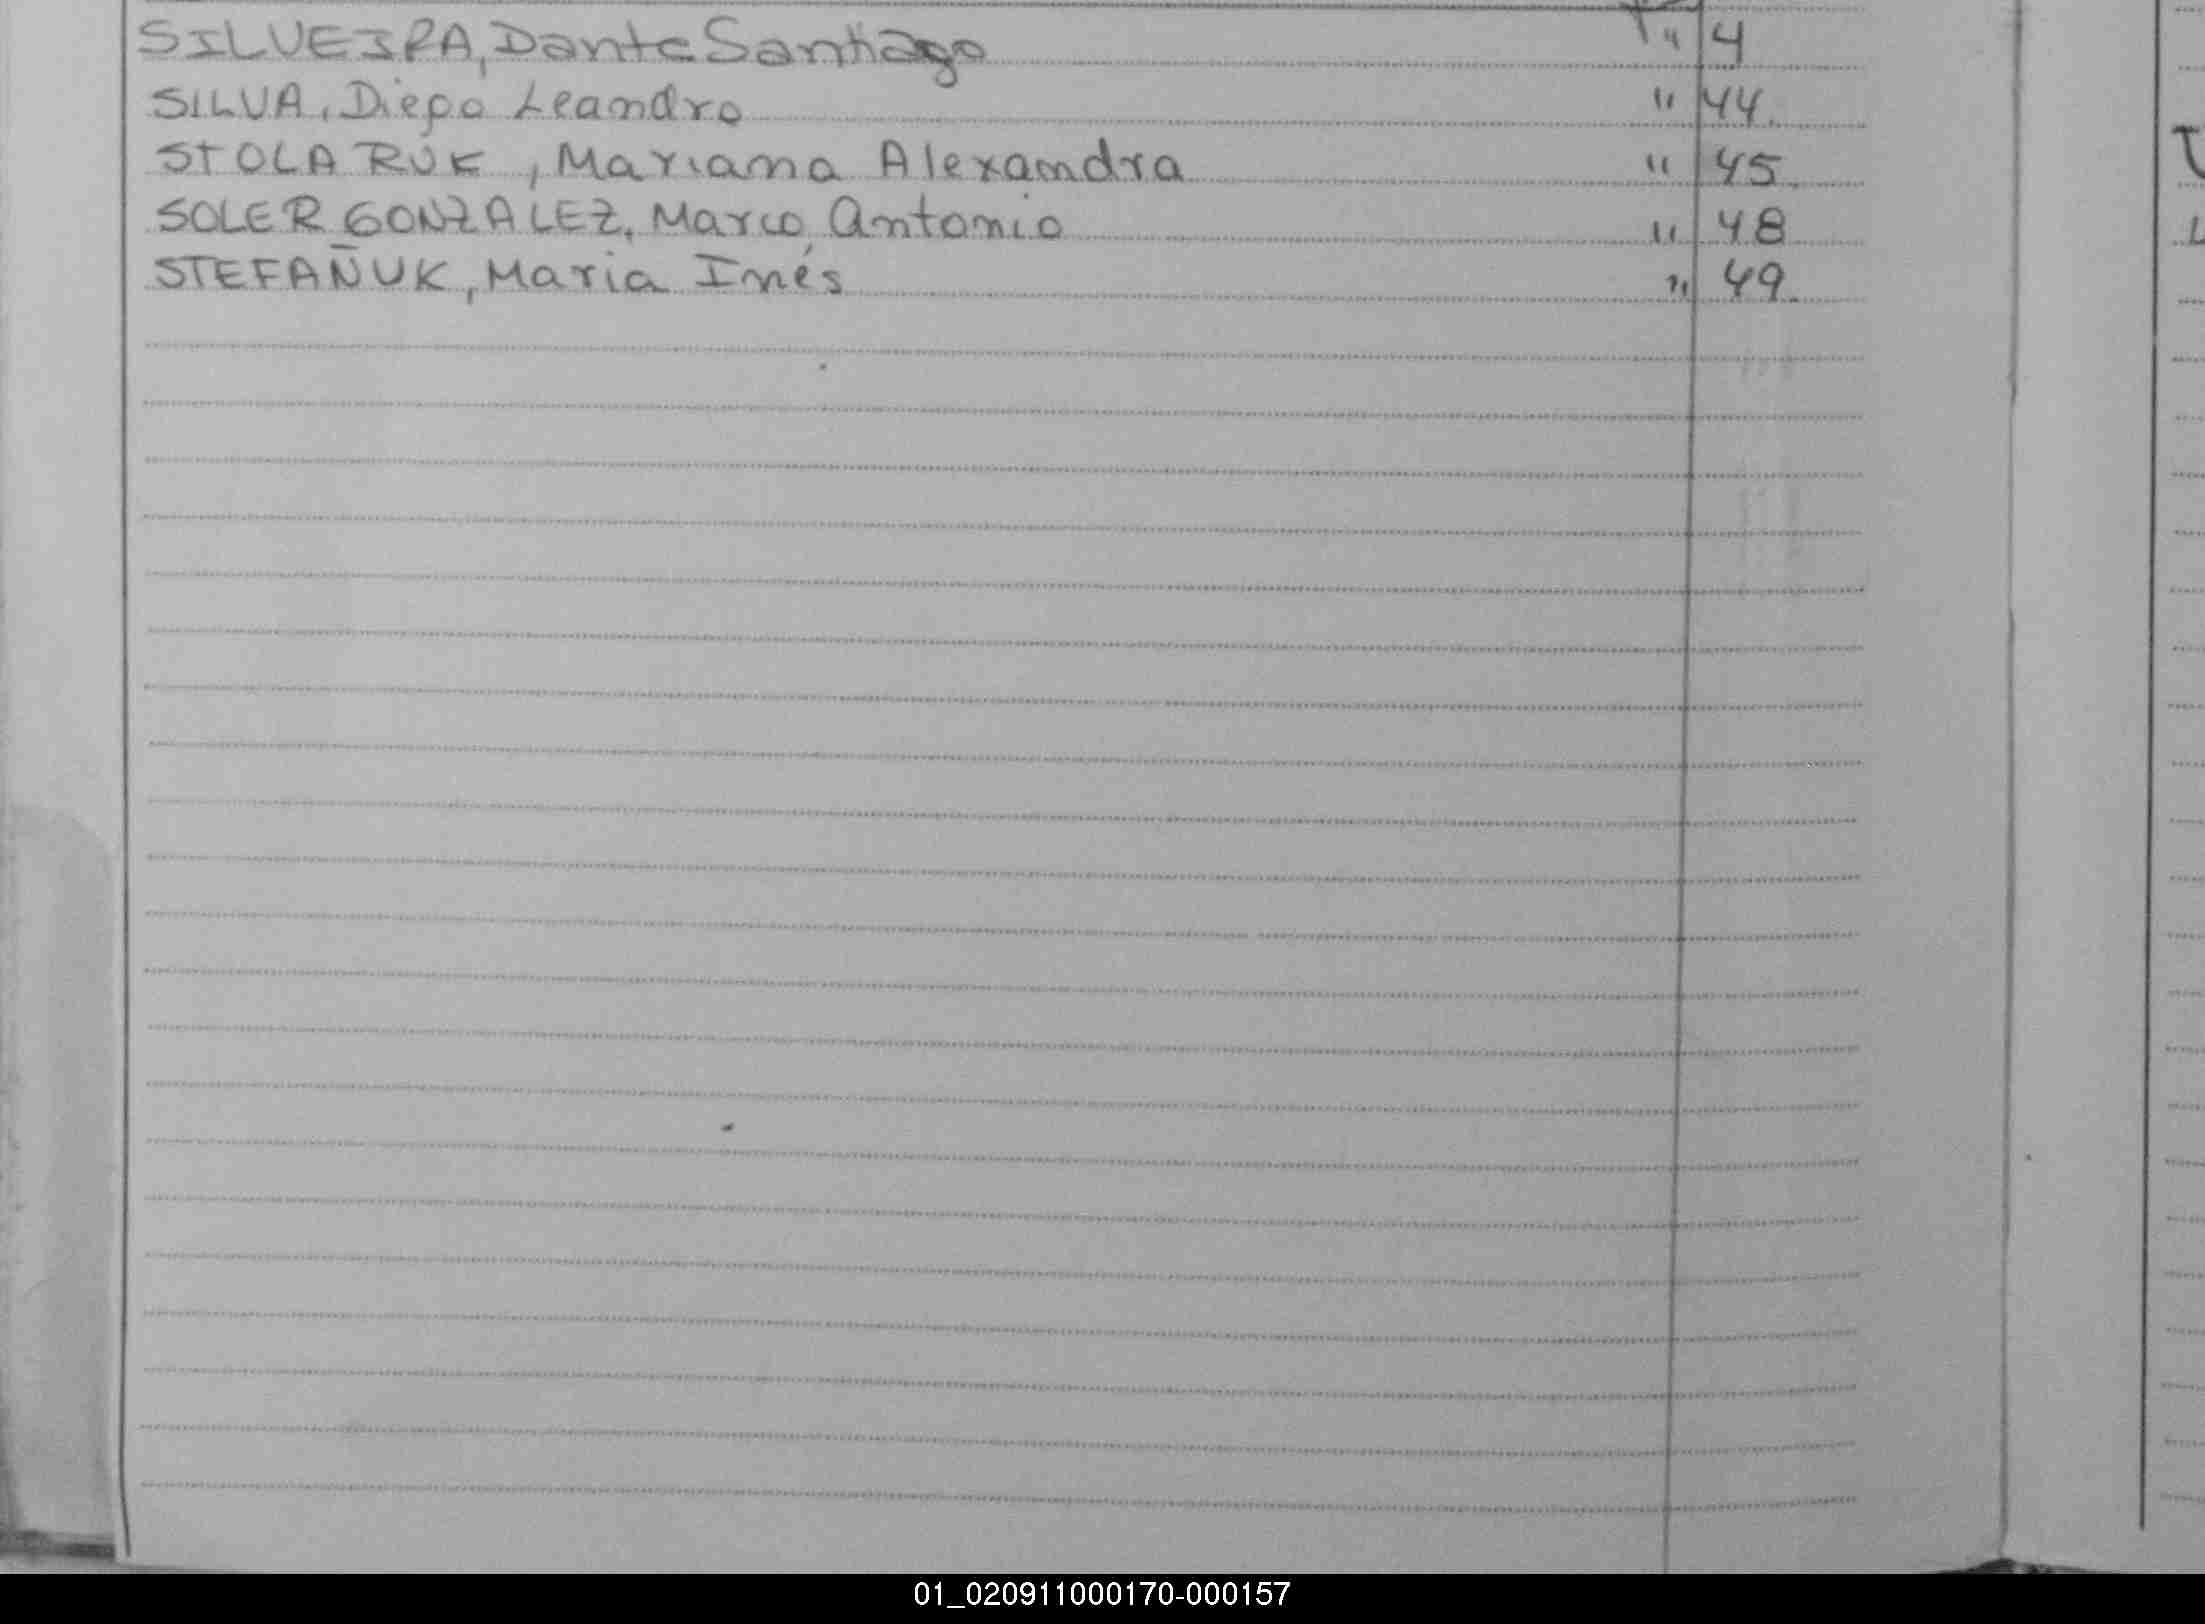 SILVEIRA, Dante Santiago " 4
SILVA, Diego Leandro " 44.
STOLARUK, Mariana Alexandra " 45.
SOLER GONZALEZ, Marco Antonio " 48
STEFAÑUK, Maria Inés " 49.
01_020911000170-000157